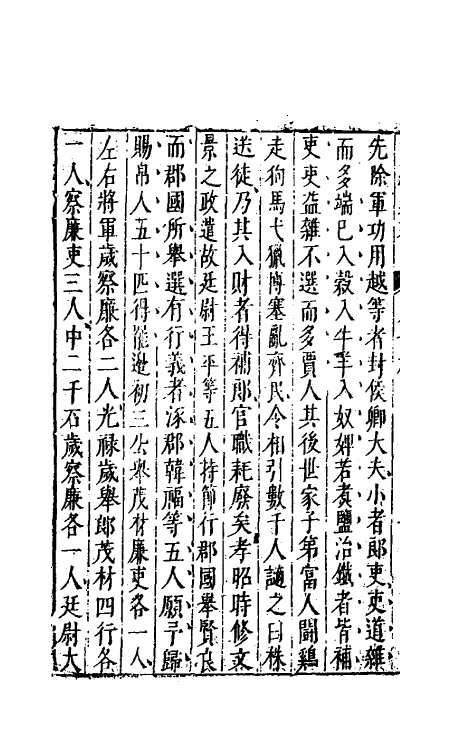 先除軍功用越等者封侯卿大夫小者郎吏吏道雜
而多端巳入穀入牛羊入奴婢若煑鹽冶鐵者皆補
吏吏益雜不選而多賈人其後世家子第富人鬪鷄
走狗馬弋獵博塞亂齊民令相引數千人謫之曰株
送徒乃其入財者得補郎官職耗廢矣孝昭時修文
景之政遣故廷尉王平等五人持節行郡國舉賢良
而郡國所舉選有行義者涿郡韓福等五人願予歸
賜帛人五十匹得罷遣初三公舉茂材廉吏各一人
左右將軍歲察廉各二人光祿歲舉郎茂材四行各
一人察廉吏三人中二千石歲察廉各一人廷尉大